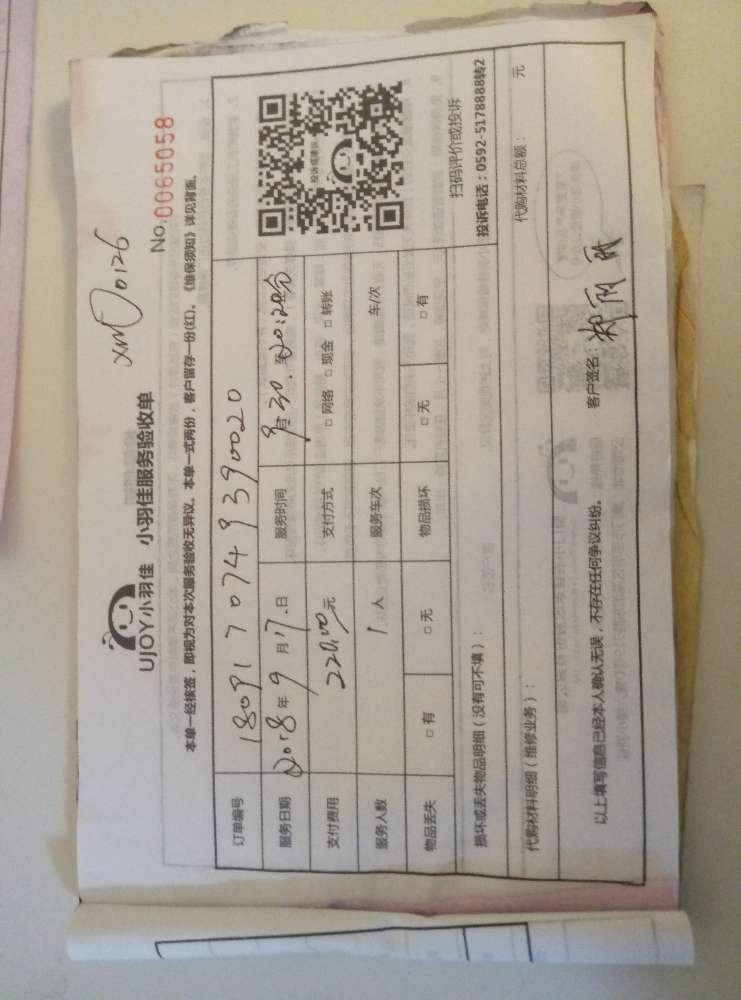 xm 0126
UJOY小羽佳 小羽佳服务验收单
No.0065058
本单一经核签，即视为对本次服务验收无异议。本单一式两份，客户留存一份(红)。《维保须知》详见背面。
订单编号 180917074939 0020
服务日期 2018年9月17日 服务时间 9:30 至 20:20分
支付费用 220.00元 支付方式 □网络 □现金 □转账
服务人数 1人 服务车次 车/次
物品丢失 □有 □无 物品损坏 □无 □有
投诉或建议
扫码评价或投诉
投诉电话：0592-5178888转2
损坏或丢失物品明细（没有可不填）：
代购材料明细（维修业务）： 代购材料总额： 元
以上填写信息已经本人确认无误，不存在任何争议纠纷。 客户签名：